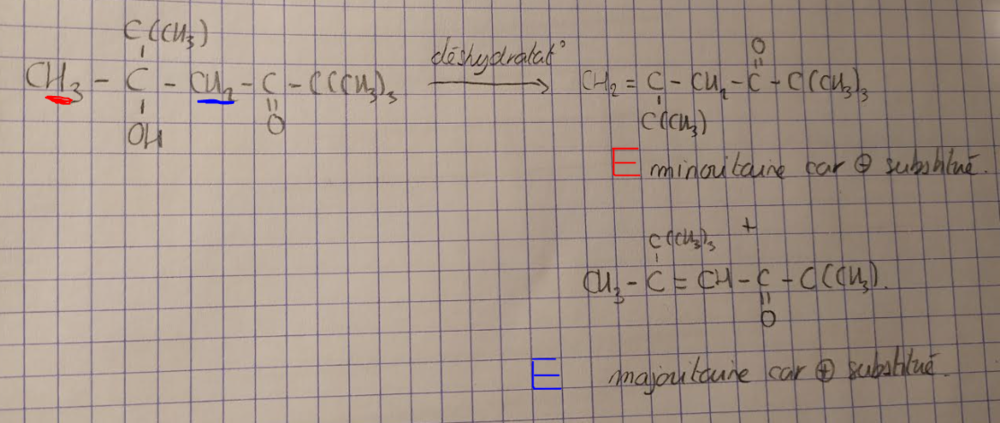 C(CH₃)
CH₃ - C - CH₂ - C - C(CH₃)₃
OH
O
déshydratat°
O
CH₂ = C - CH₂ - C - C(CH₃)₃
C(CH₃)
E minoritaire car ⊖ substitué.
+
C(CH₃)₃
CH₃ - C = CH - C - C(CH₃).
O
E majoritaire car ⊕ substitué.